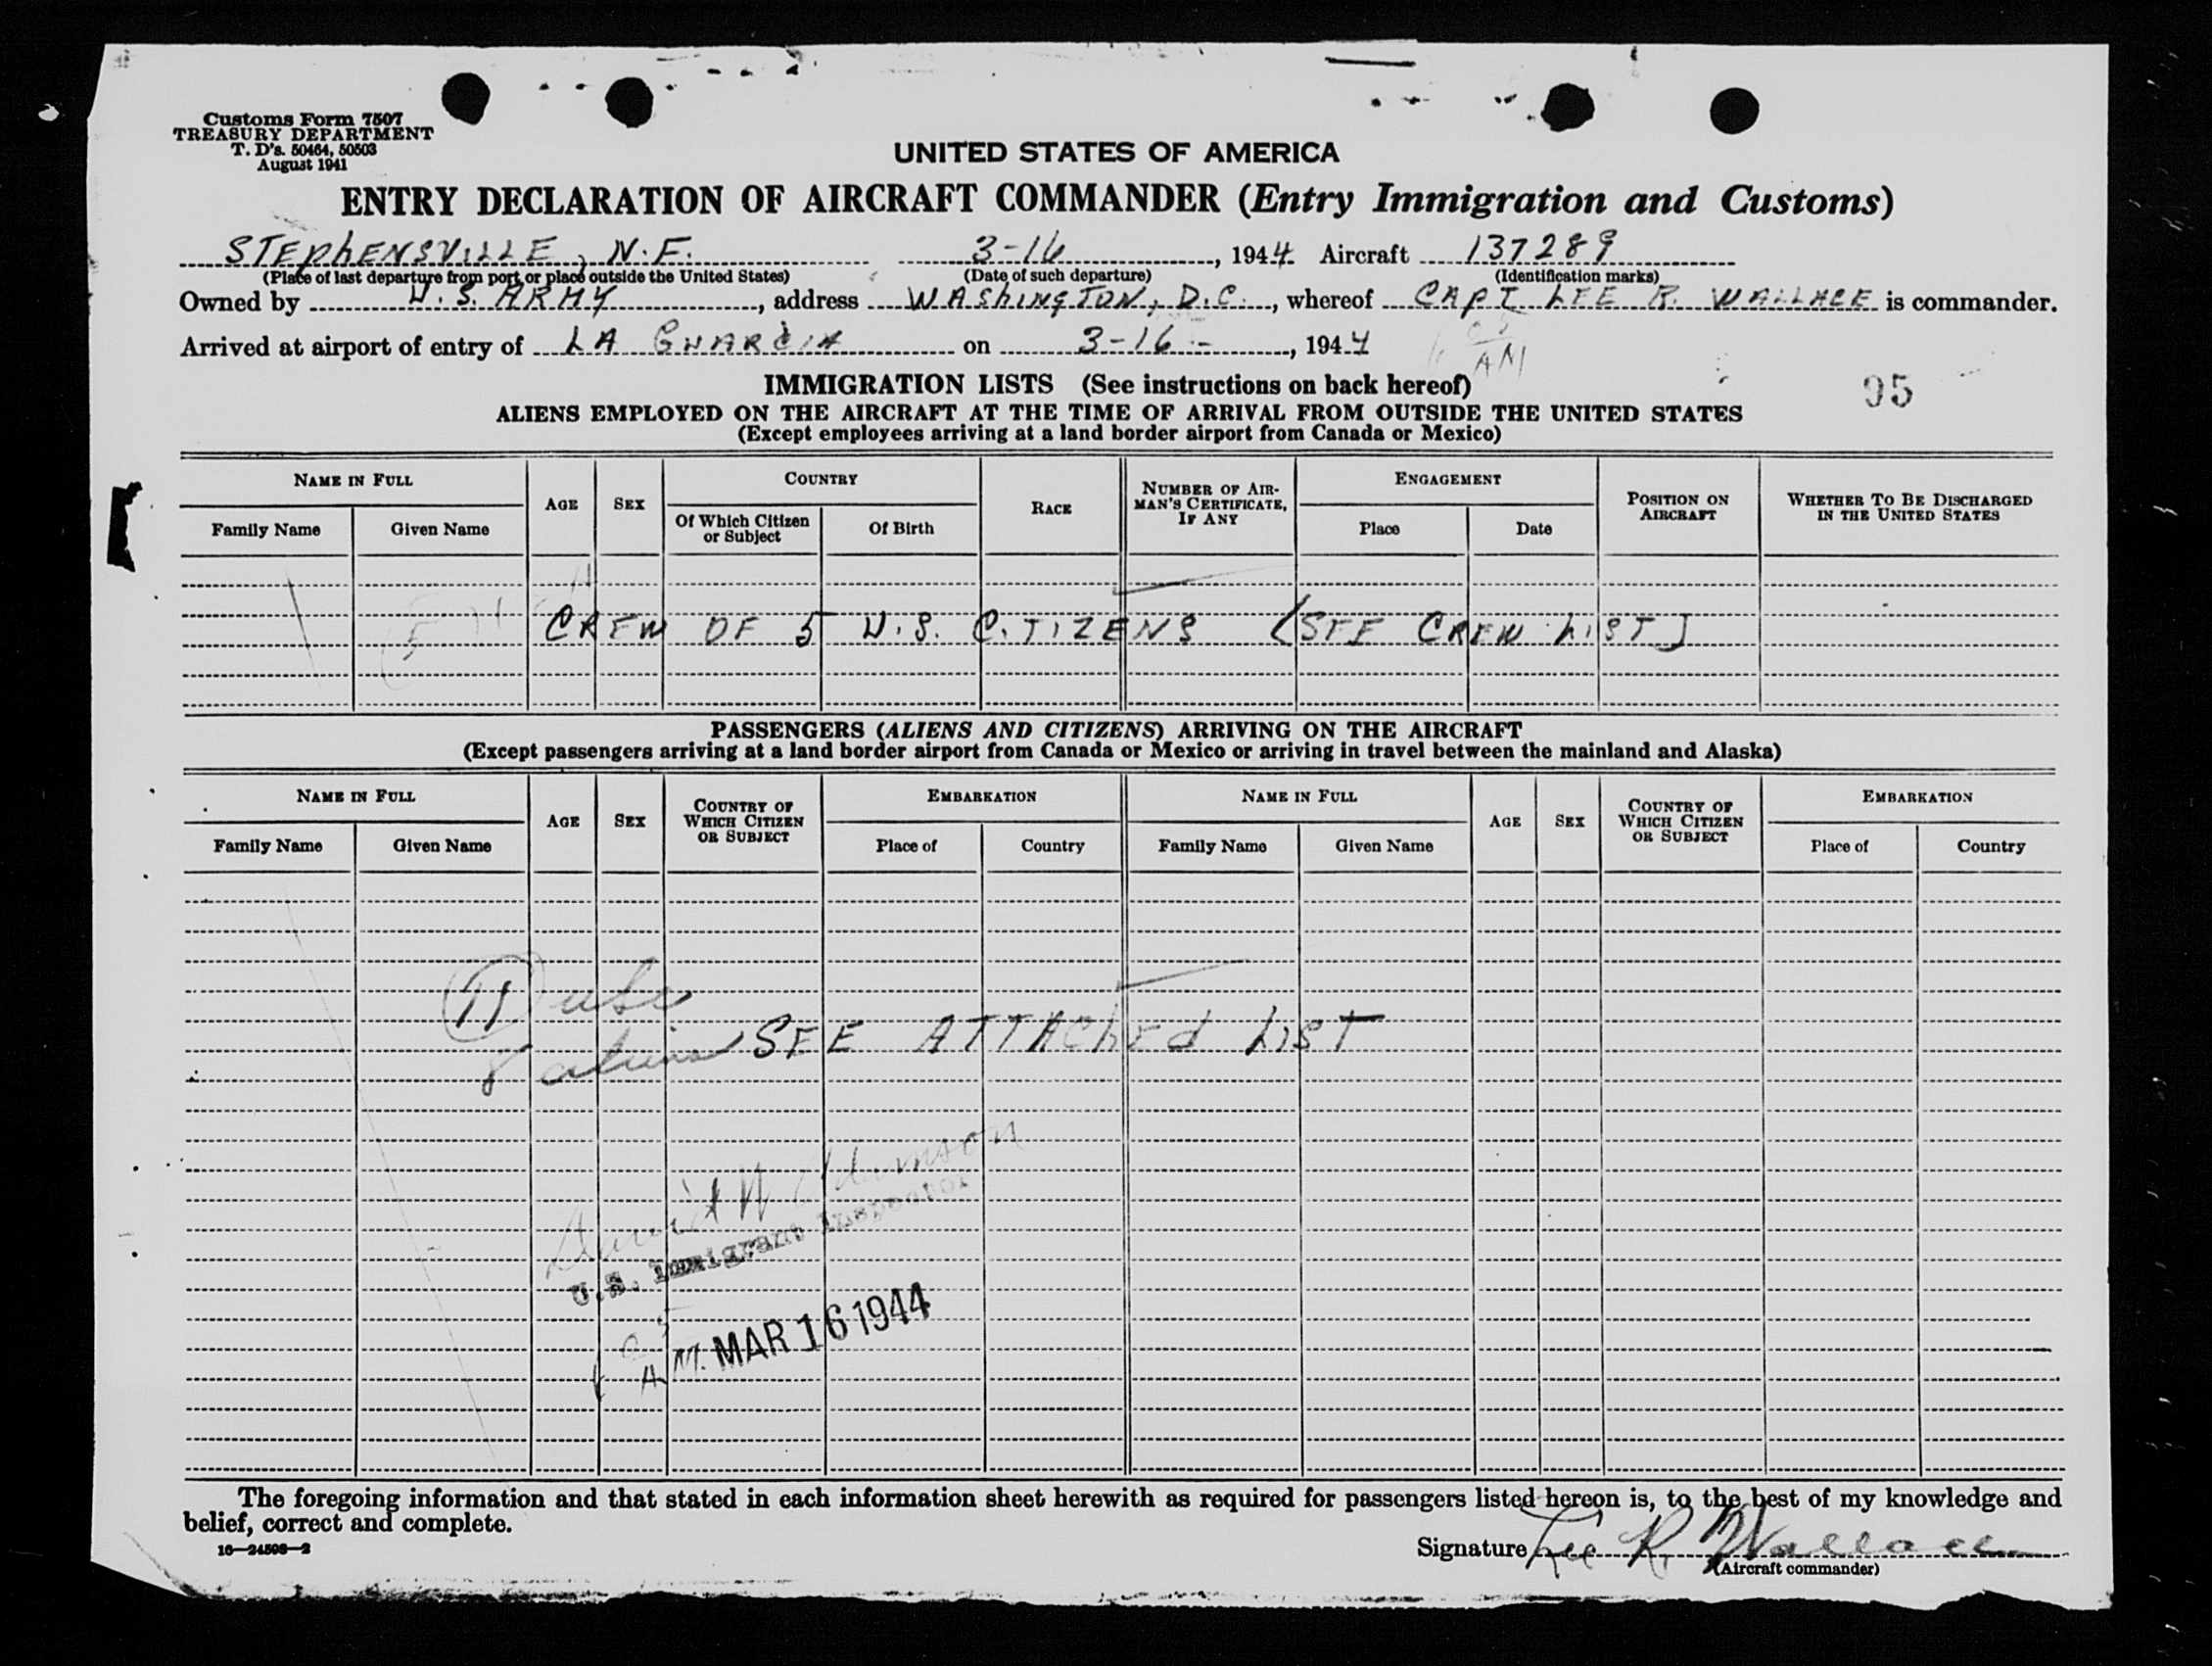 Customs Form 7507
TREASURY DEPARTMENT
T. D's. 50464, 50503
August 1941
UNITED STATES OF AMERICA
ENTRY DECLARATION OF AIRCRAFT COMMANDER (Entry Immigration and Customs)
STEPhENSVILLE, N.F. 3-16, 1944 Aircraft 137289
(Place of last departure from port or place outside the United States) (Date of such departure) (Identification marks)
Owned by U.S. ARMY, address WAShINGTON, D.C., whereof CAPT LEE R. WALLACE is commander.
Arrived at airport of entry of LA GUARDIA on 3-16-, 1944
AM
IMMIGRATION LISTS (See instructions on back hereof)
95
ALIENS EMPLOYED ON THE AIRCRAFT AT THE TIME OF ARRIVAL FROM OUTSIDE THE UNITED STATES
(Except employees arriving at a land border airport from Canada or Mexico)
NAME IN FULL AGE SEX COUNTRY RACE NUMBER OF AIRMAN'S CERTIFICATE, IF ANY ENGAGEMENT POSITION ON AIRCRAFT WHETHER TO BE DISCHARGED IN THE UNITED STATES
Family Name Given Name Of Which Citizen or Subject Of Birth Place Date
CREW OF 5 U.S. CITIZENS (SEE CREW LIST)
PASSENGERS (ALIENS AND CITIZENS) ARRIVING ON THE AIRCRAFT
(Except passengers arriving at a land border airport from Canada or Mexico or arriving in travel between the mainland and Alaska)
NAME IN FULL AGE SEX COUNTRY OF WHICH CITIZEN OR SUBJECT EMBARKATION NAME IN FULL AGE SEX COUNTRY OF WHICH CITIZEN OR SUBJECT EMBARKATION
Family Name Given Name Place of Country Family Name Given Name Place of Country
11 usc
8 aliens SEE ATTAChEd LIST
U.S. Immigrant Inspector
A M. MAR 16 1944
The foregoing information and that stated in each information sheet herewith as required for passengers listed hereon is, to the best of my knowledge and
belief, correct and complete.
16—24598—2
Signature Lee R. Wallace
(Aircraft commander)